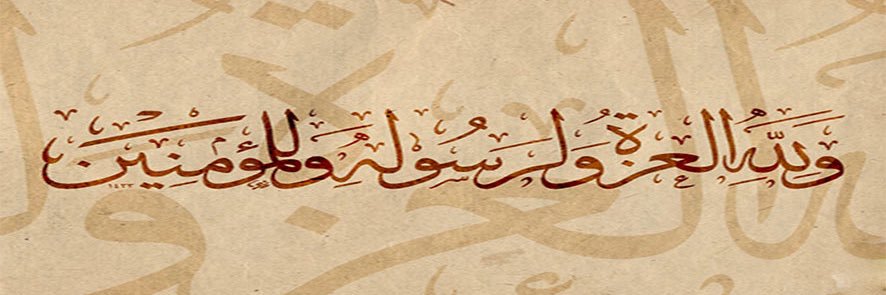 وَلِلَّهِ الْعِزَّةُ وَلِرَسُولِهِ وَلِلْمُؤْمِنِينَ
١٤٣٣